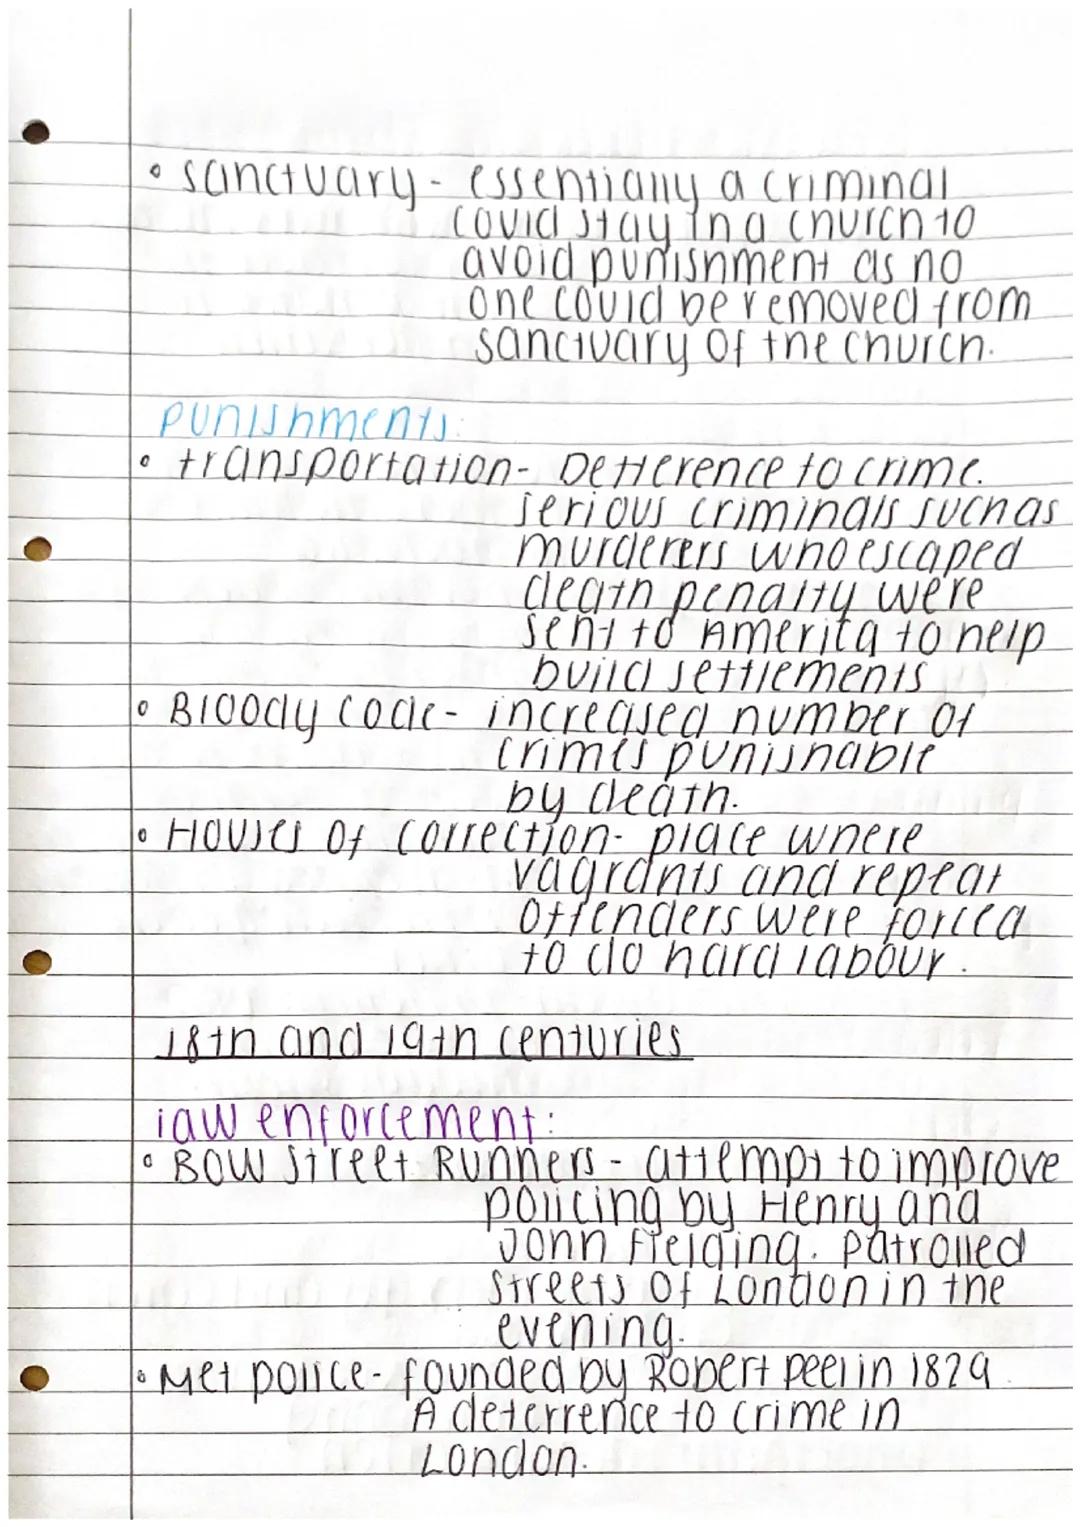 • sanctuary - essentially a criminal
could stay in a church to
avoid punishment as no
one could be removed from
sanctuary of the church.
punishments:
• transportation - Detterence to crime.
serious criminals such as
murderers who escaped
death penalty were
sent to America to help
build settlements
• Bloody code - increased number of
crimes punishable
by death.
• Houses of correction - place where
vagrants and repeat
offenders were forced
to do hard labour.
18th and 19th centuries
law enforcement:
• Bow Street Runners - attempt to improve
policing by Henry and
John Fielding. Patrolled
streets of London in the
evening.
• Met police - founded by Robert peel in 1829.
A deterrence to crime in
London.